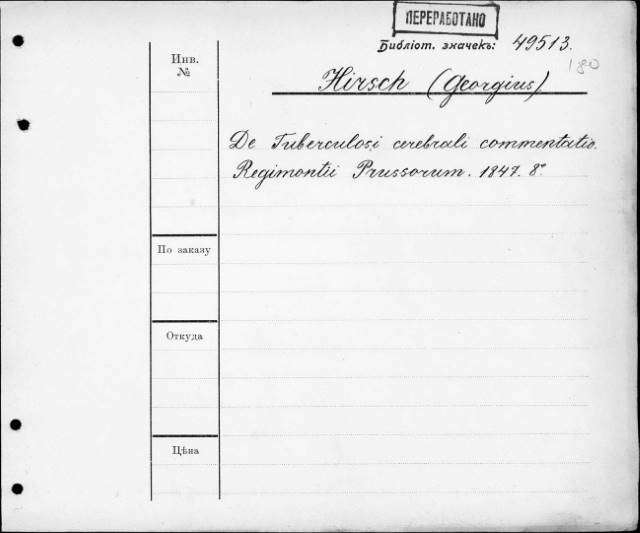 ПЕРЕРАБОТАНО
Библіот. значекъ: 49513.
180
Инв.
№
Hirsch (Georgius)
De Tuberculosi cerebrali commentatio.
Regimontii Prussorum. 1847. 8°.
По заказу
Откуда
Цѣна